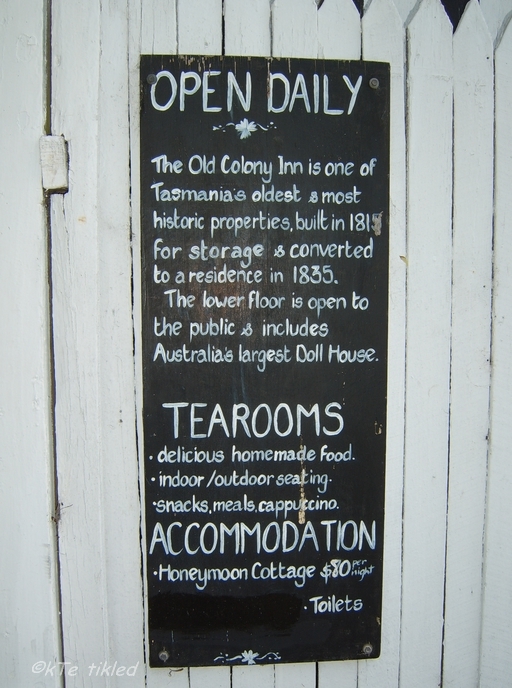 OPEN DAILY
The Old Colony Inn is one of
Tasmania's oldest & most
historic properties, built in 1815
for storage & converted
to a residence in 1835.
The lower floor is open to
the public & includes
Australia's largest Doll House.
TEAROOMS
• delicious homemade food.
• indoor/outdoor seating.
• snacks, meals, cappuccino.
ACCOMMODATION
• Honeymoon Cottage $80 per night
• Toilets
©kTe tikled